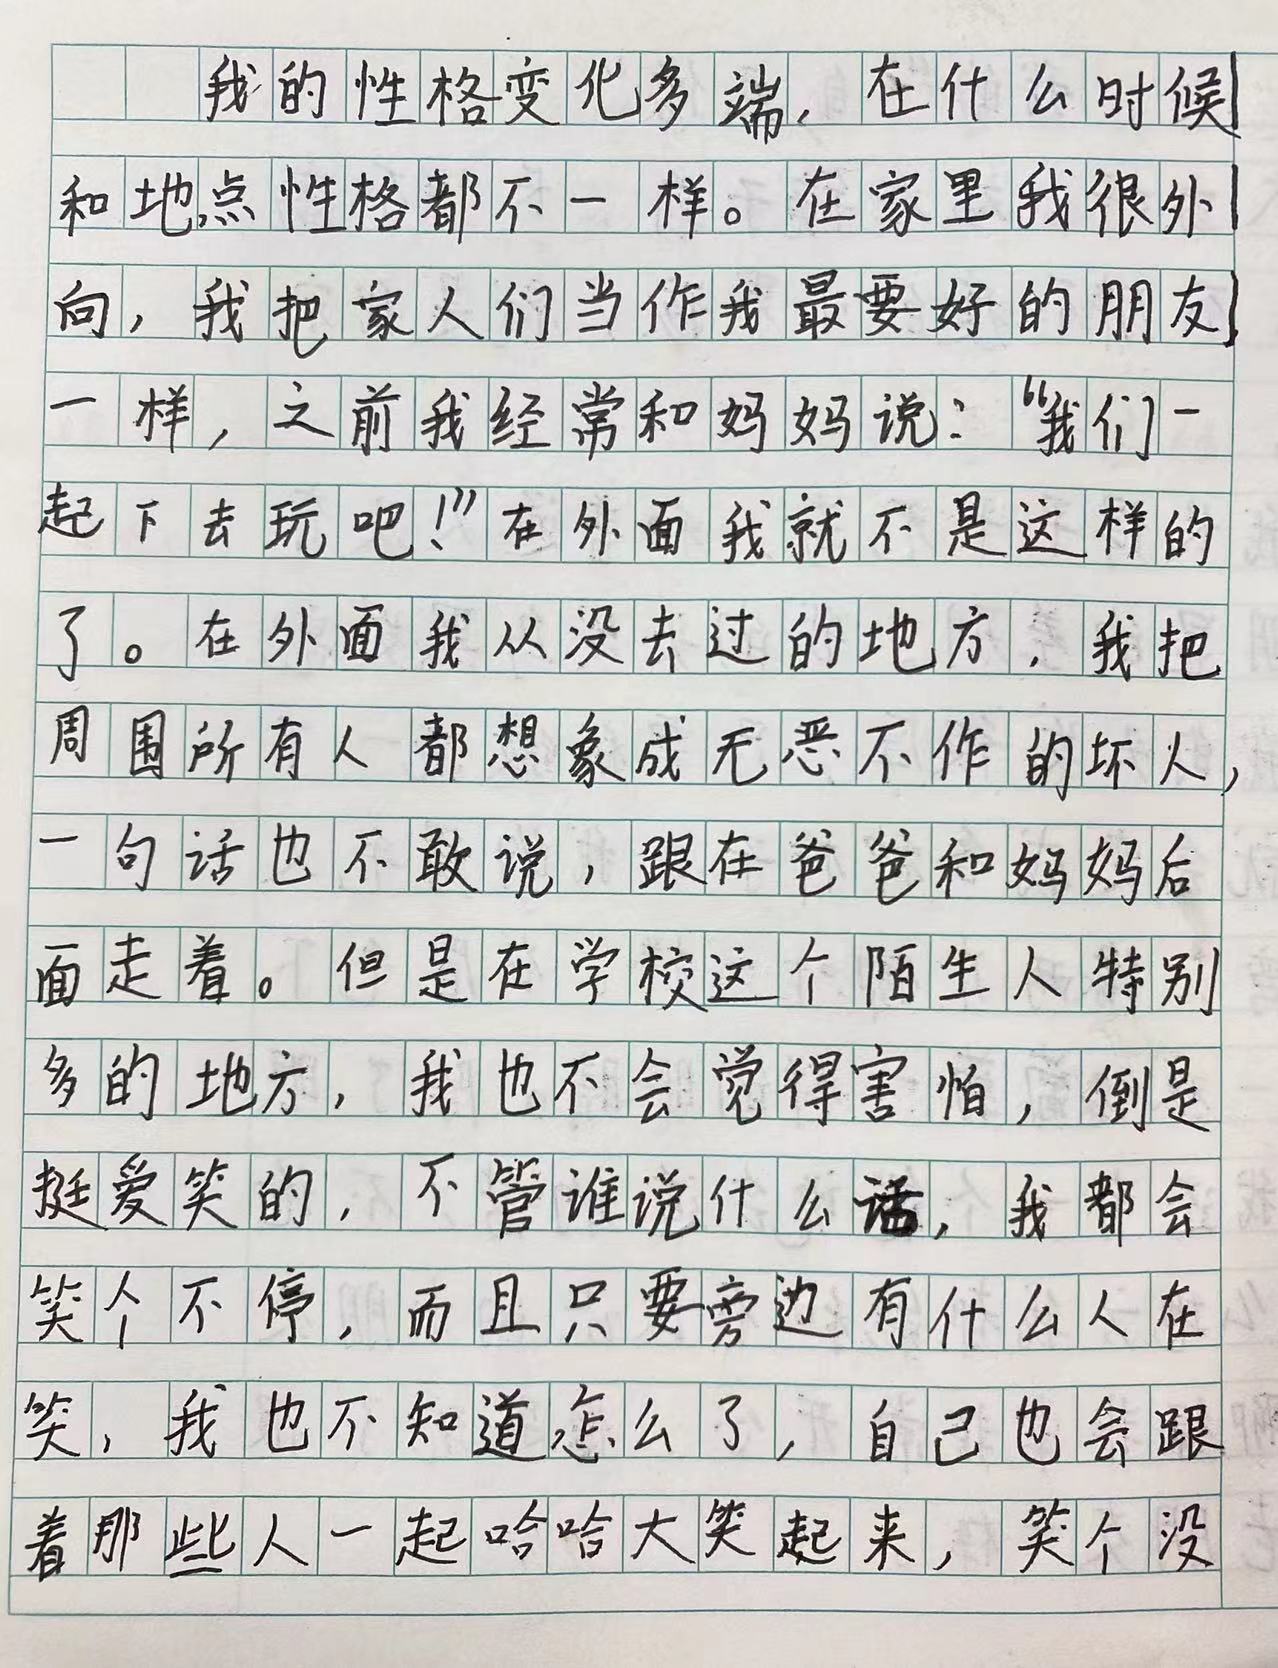 我的性格变化多端，在什么时候
和地点性格都不一样。在家里我很外
向，我把家人们当作我最要好的朋友
一样，之前我经常和妈妈说：“我们一
起下去玩吧！”在外面我就不是这样的
了。在外面我从没去过的地方，我把
周围所有人都想象成无恶不作的坏人，
一句话也不敢说，跟在爸爸和妈妈后
面走着。但是在学校这个陌生人特别
多的地方，我也不会觉得害怕，倒是
挺爱笑的，不管谁说什么话，我都会
笑个不停，而且只要旁边有什么人在
笑，我也不知道怎么了，自己也会跟
着那些人一起哈哈大笑起来，笑个没